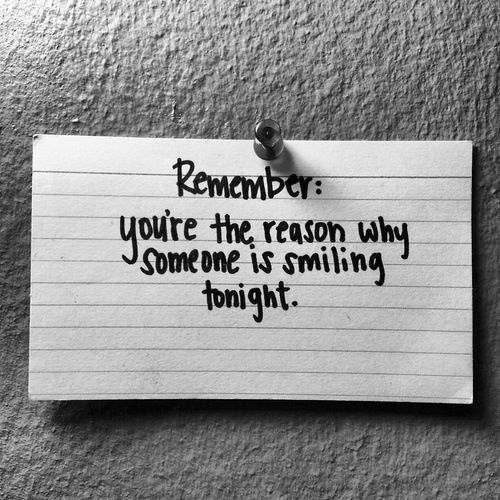 Remember:
you're the reason why
someone is smiling
tonight.